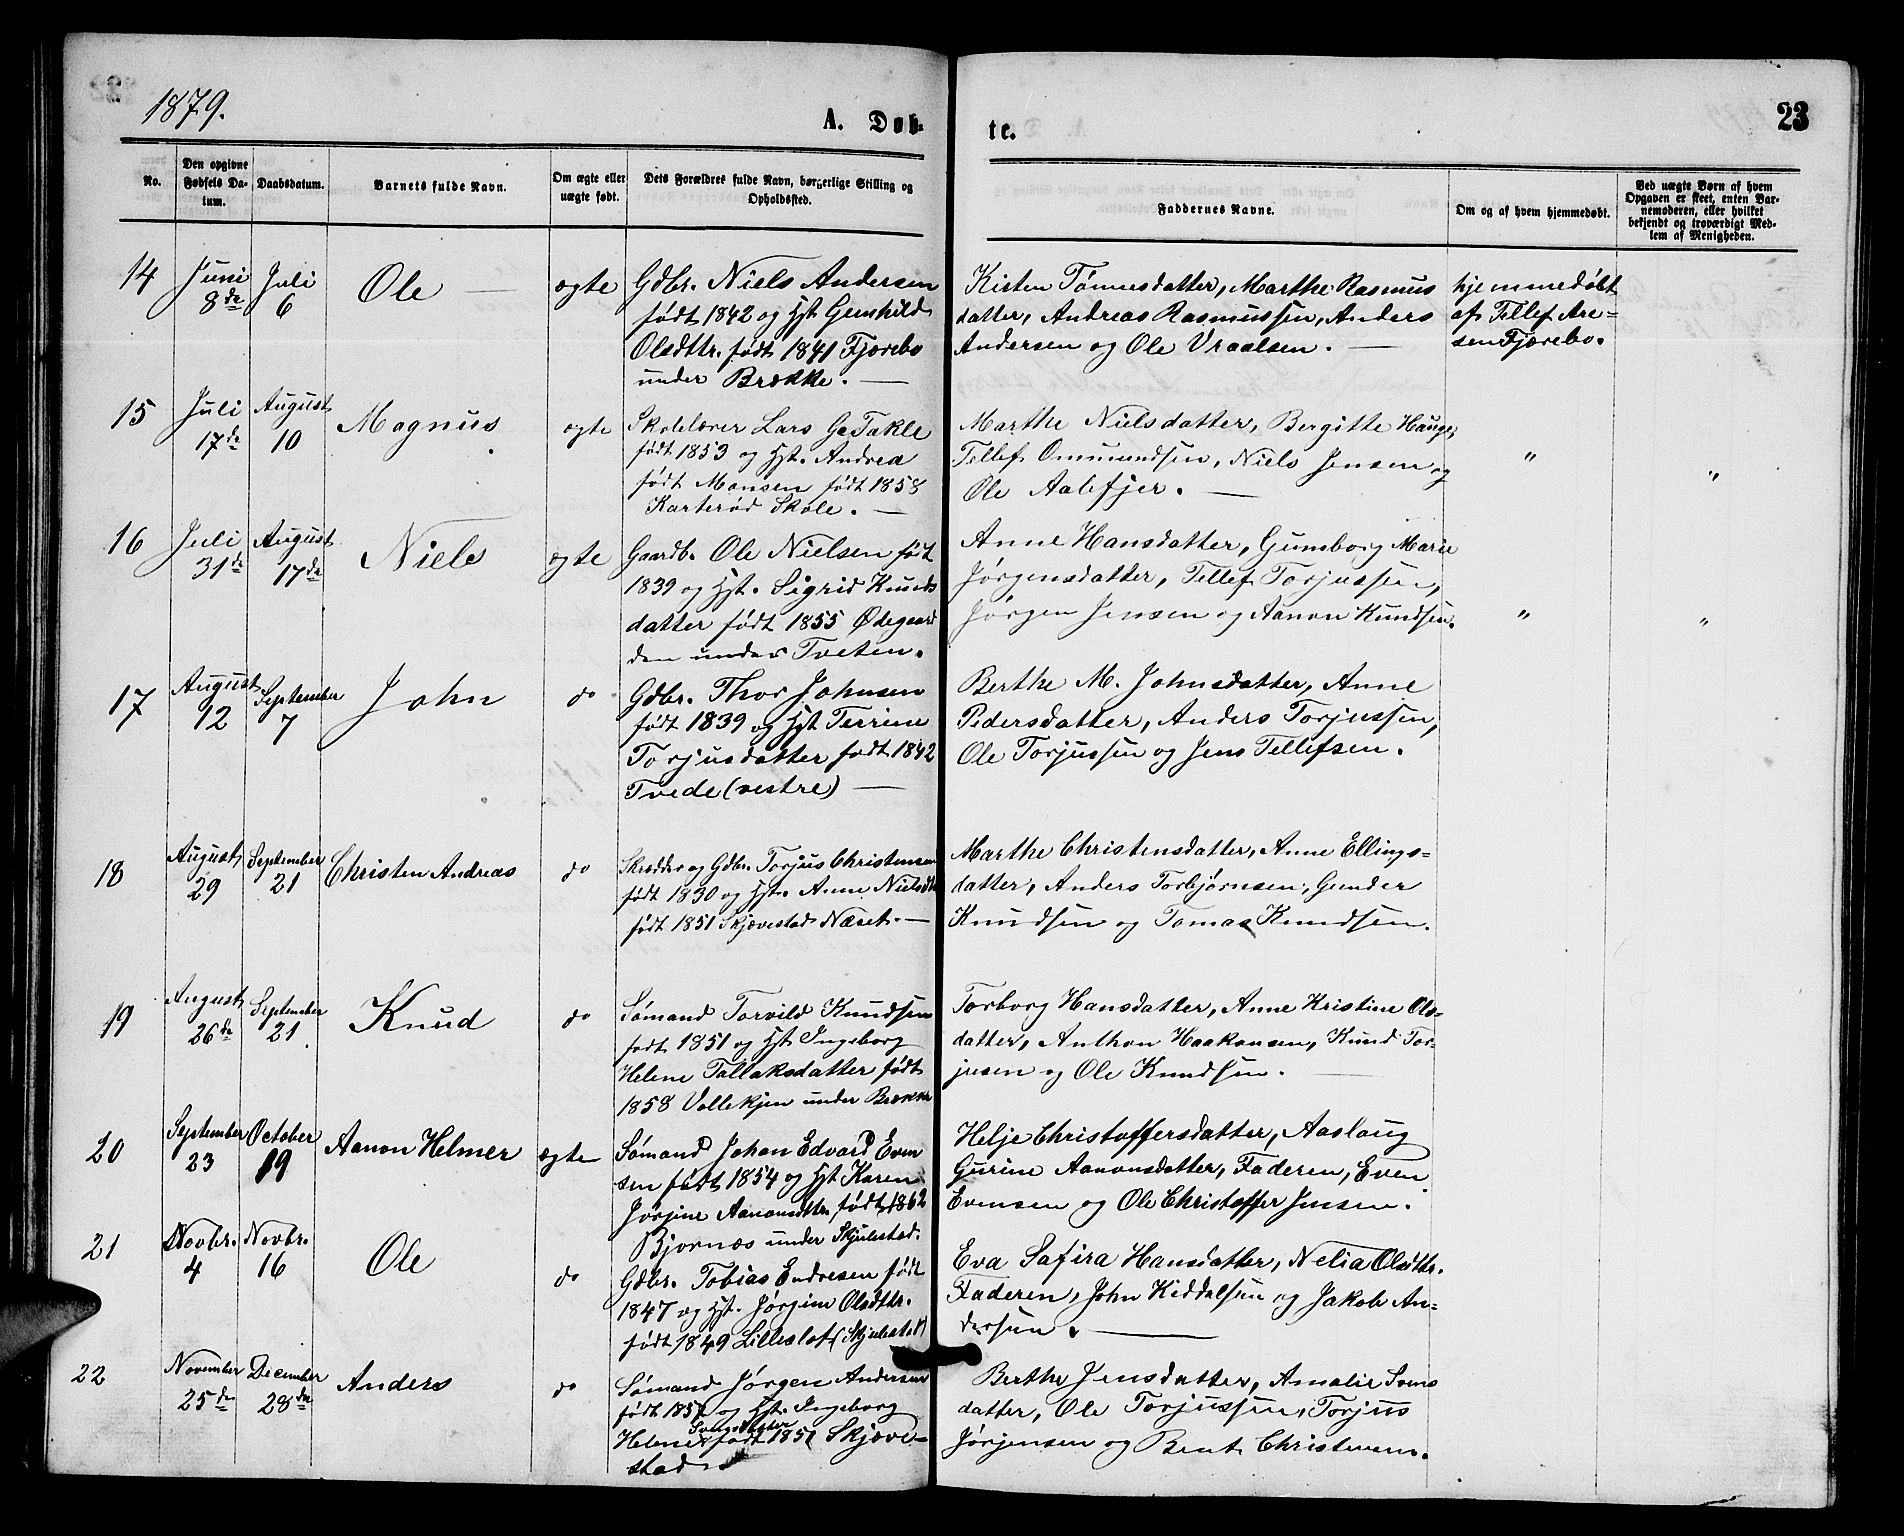 1879.
A. Døb-
te.
23
No.
Den opgivne Fødsels Da-tum.
Daabsdatum.
Barnets fulde Navn.
Om ægte eller uægte født.
Dets Forældres fulde Navn, borgerlige Stilling og Opholdssted.
Faddernes Navne.
Om og af hvem hjemmedøbt.
Ved uægte Børn af hvem Opgaven er skeet, enten Bar-nemoderen, eller hvilket bekjendt og troværdigt Med-lem af Menigheden.
14
Juni 8de
Juli 6
Ole
ægte
Gdbr. Niels Andersen
født 1842 og Hst. Gunhild
Olsdttr. født 1841 Fjærebo
under Brække.
Kirsten Tønnesdatter, Marthe Rasmus
datter, Andreas Rasmussen, Anders
Andersen og Ole Vraalsen.
hjemmedøbt
af Tellef Are-
sen Fjærebo.
15
Juli 17de
August 10
Magnus
ægte
Skolelærer Lars G. Takle
født 1853 og Hst. Andrea
født Monsen født 1858
Karterød Skole.
Marthe Nielsdatter, Bergitte Hauge,
Tellef Ommundsen, Niels Jensen og
Ole Aalefjer.
"
"
16
Juli 31de
August 17de
Niels
ægte
Gaardb. Ole Nielsen født
1839 og Hst. Sigrid Knuds
datter født 1855 Ødegaard
den under Tveten.
Anne Hansdatter, Gunborg Marie
Jørgensdatter, Tellef Torjussen,
Jørgen Jensen og Aanon Knudsen.
"
"
17
August 12
September 7
John
do
Gdbr. Thor Johnsen
født 1839 og Hst Terrine
Torjusdatter født 1842
Tvede (vestre)
Berthe M. Johnsdatter, Anne
Pedersdatter, Anders Torjussen,
Ole Torjussen og Jens Tellefsen.
18
August 29
September 21
Christen Andreas
do
Skrædder og Gdbr. Torjus Christensen
født 1830 og Hst. Anne Nielsdt
født 1851 Skjævestad Næset.
Marthe Christensdatter, Anne Ellings-
datter, Anders Torbjørnsen, Gunder
Knudsen og Tomas Knudsen.
19
August 26de
September 21
Knud
do
Sømand Torvild Knudsen
født 1851 og Hst Ingeborg
Helene Tallaksdatter født
1858 Vollekjen under Brække
Torborg Hansdatter, Anne Kristine Ols-
datter, Anthon Haakonsen, Knud Tor-
jusen og Ole Knudsen.
20
September 23
October 19
Aanon Helmer
ægte
Sømand Johan Edvard Even
sen født 1854 og Hst Karen
Jørgine Aanonsdttr. født 1862
Bjornæs under Skjulestad.
Helje Christoffersdatter, Aaslaug
Gurine Aanonsdatter, Faderen, Even
Evensen og Ole Christoffer Jensen.
21
Novbr. 4
Novbr. 16
Ole
do
Gdbr. Tobias Endresen født
1847 og Hst. Jørgine Olsdttr.
født 1849 Lilleslot (Skjulestad)
Eva Safira Hansdatter, Nelia Olsdttr.
Faderen, John Kiddelsen og Jakob An-
dersen.
22
November 25de
December 28de
Anders
do
Sømand Jørgen Andersen
født 185 og Hst. Ingeborg
Helene Svensdatter født 1851 Skjæve-
stad
Berthe Jensdatter, Amalie Svens
datter, Ole Torjussen, Torjus
Jørjensen og Bent Christensen.